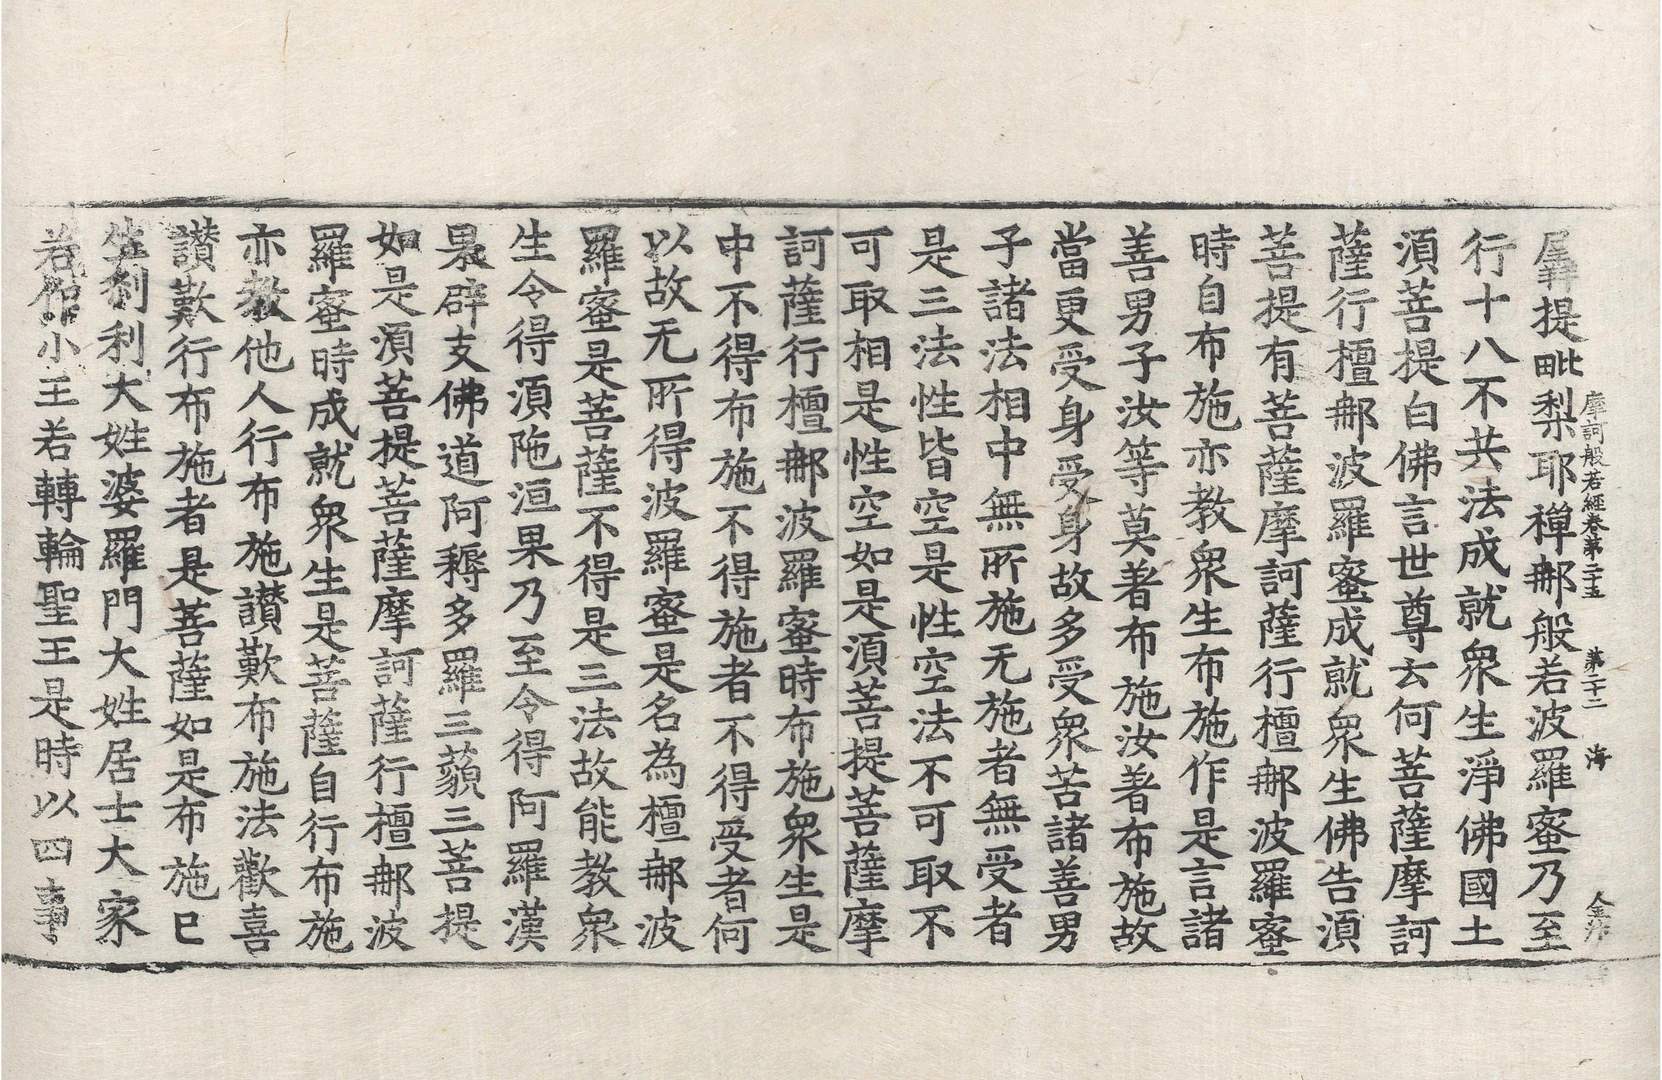 摩訶般若經卷第二十五　第二十二　海
羼提毗梨耶禪那般若波羅蜜乃至
行十八不共法成就衆生淨佛國土
湏菩提白佛言世尊云何菩薩摩訶
薩行檀那波羅蜜成就衆生佛告湏
菩提有菩薩摩訶薩行檀那波羅蜜
時自布施亦教衆生布施作是言諸
善男子汝等莫著布施汝著布施故
當更受身受身故多受衆苦諸善男
子諸法相中無所施无施者無受者
是三法性皆空是性空法不可取不
可取相是性空如是湏菩提菩薩摩
訶薩行檀那波羅蜜時布施衆生是
中不得布施不得施者不得受者何
以故无所得波羅蜜是名為檀那波
羅蜜是菩薩不得是三法故能教衆
生令得湏陁洹果乃至令得阿羅漢
果辟支佛道阿耨多羅三藐三菩提
如是湏菩提菩薩摩訶薩行檀那波
羅蜜時成就衆生是菩薩自行布施
亦教他人行布施讃歎布施法歡喜
讃歎行布施者是菩薩如是布施已
生刹利大姓婆羅門大姓居士大家
若作小王若轉輪聖王是時以四事